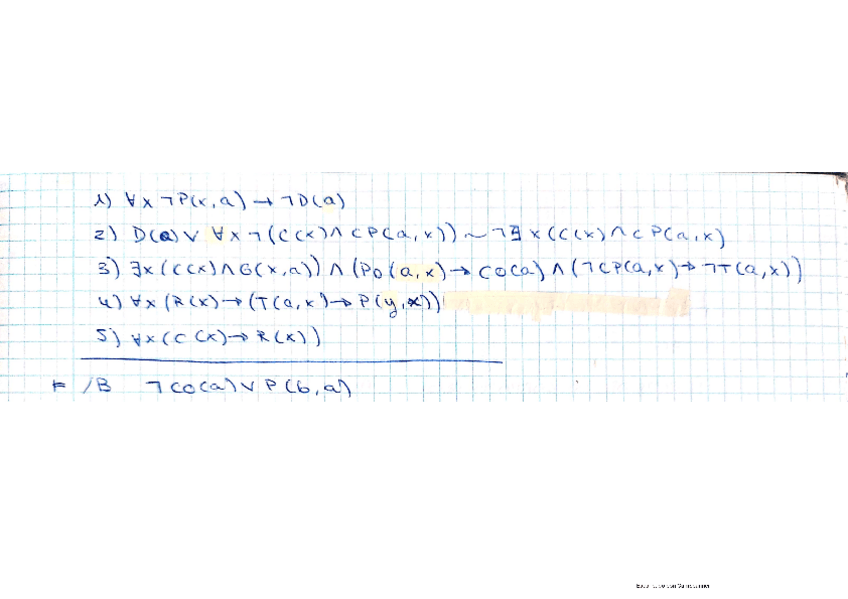 1) ∀x ¬P(x,a) → ¬D(a)
2) D(a) ∨ ∀x ¬(C(x) ∧ CP(a,x)) ~ ¬∃x(C(x) ∧ CP(a,x)
3) ∃x(C(x) ∧ G(x,a)) ∧ (Po(a,x) → CO(a) ∧ (¬CP(a,x) → ¬T(a,x))
4) ∀x (R(x) → (T(a,x) → P(y,x))
5) ∀x (C(x) → R(x))
⊨ /B ¬CO(a) ∨ P(b,a)